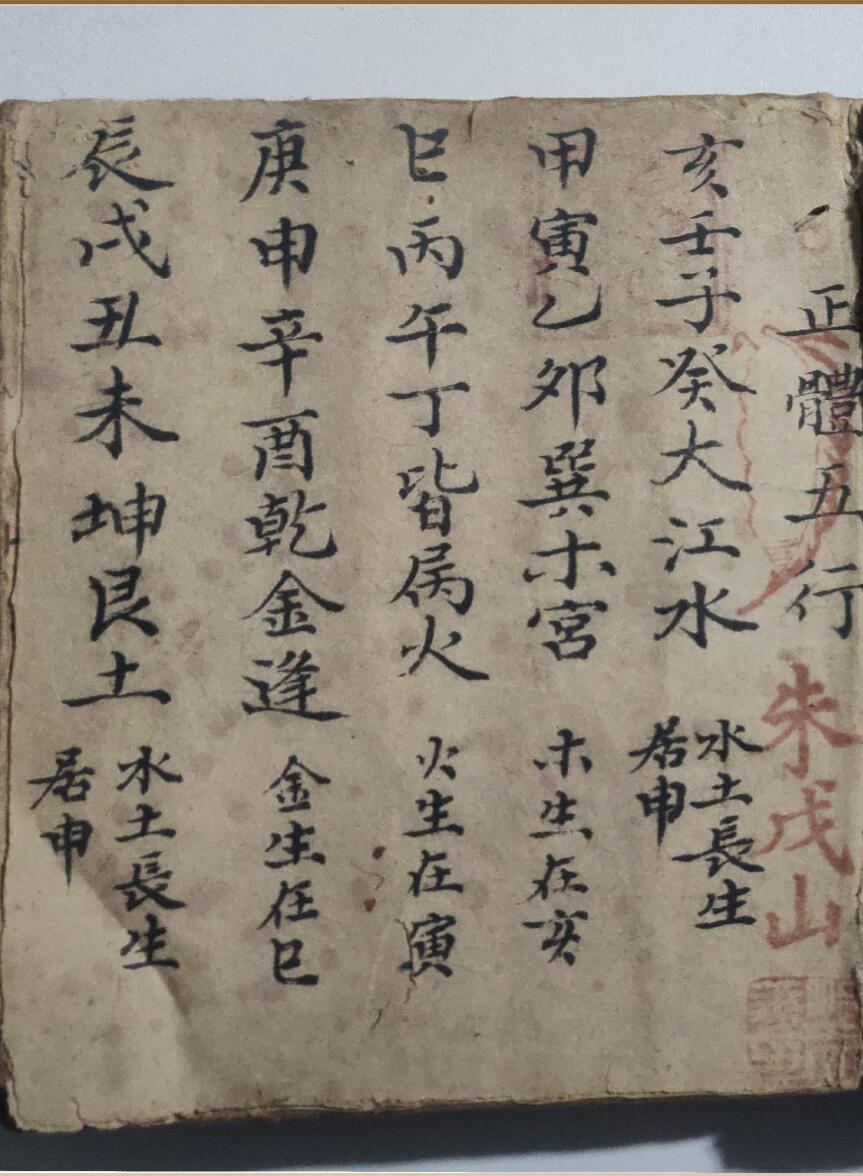 正體五行
朱戊山
亥壬子癸大江水
水土長生
居申
甲寅乙卯巽木宮
木生在亥
巳丙午丁皆屙火
火生在寅
庚申辛酉乾金逢
金生在巳
辰戌丑未坤艮土
水土長生
居申